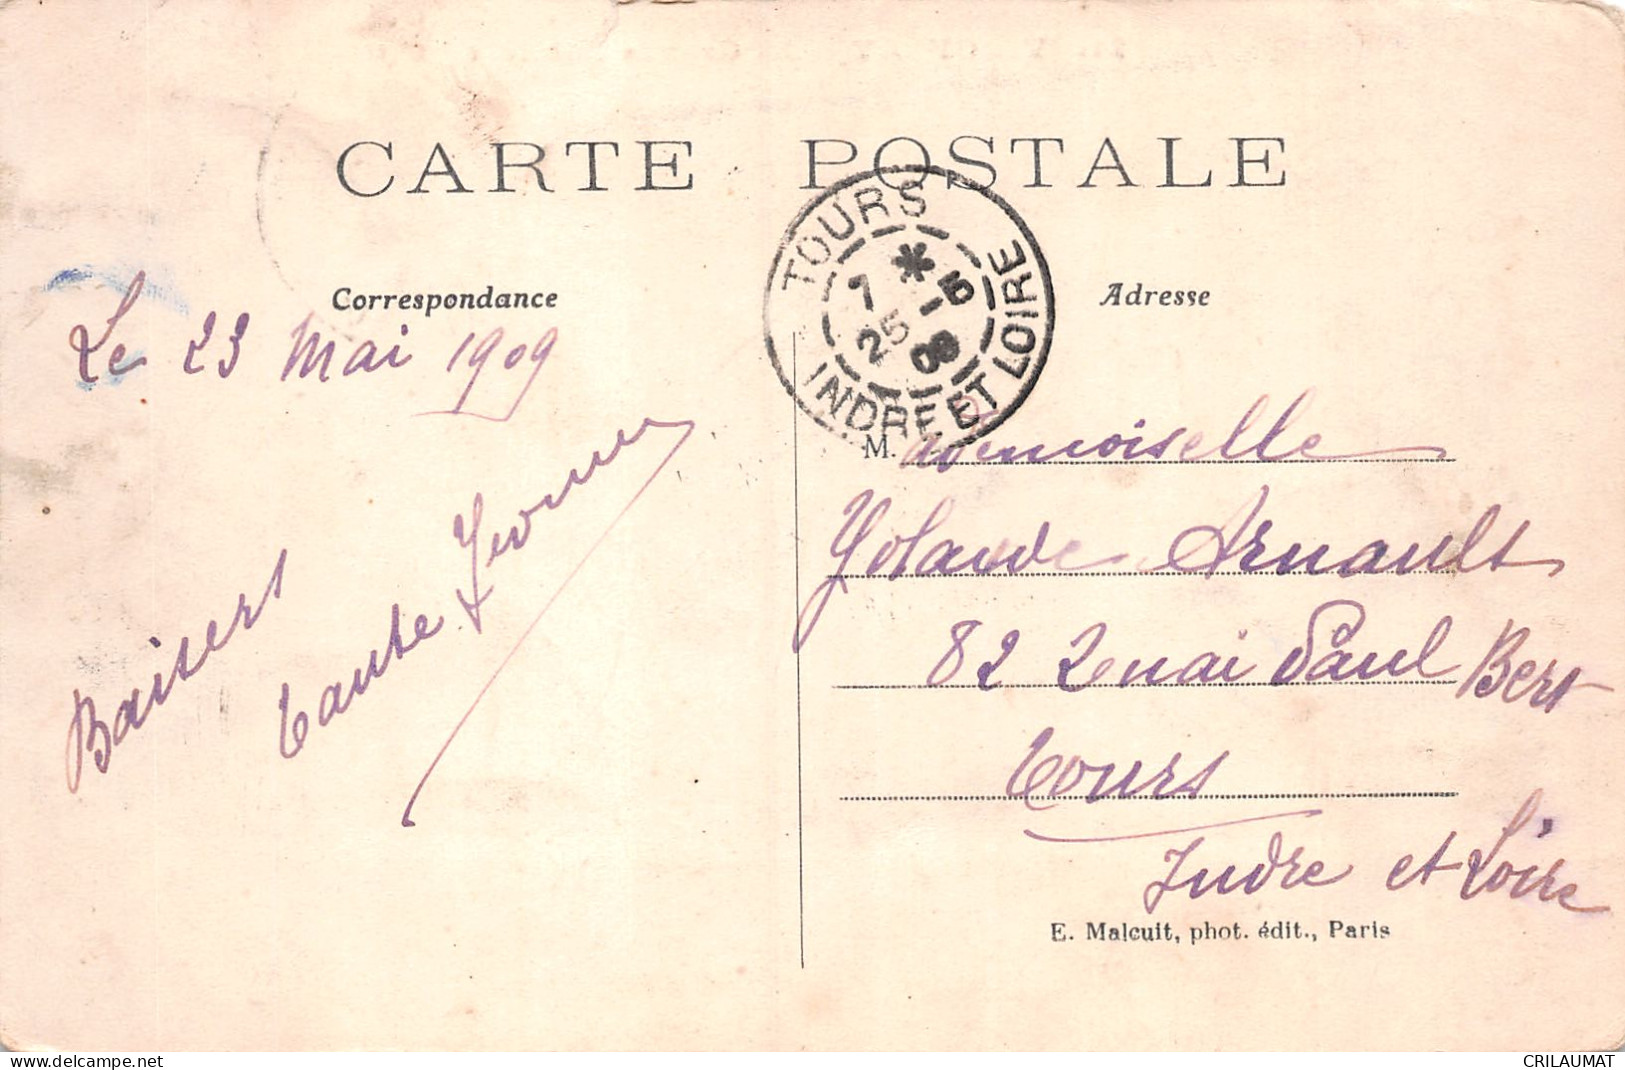 CARTE POSTALE
Correspondance
Le 23 Mai 1909
Baisers
tante Yvonne
TOURS
7 * 5
25 - 09
INDRE ET LOIRE
Adresse
M.ademoiselle
Yolande Arnault
82 Quai Paul Bert
Tours
Indre et Loire
E. Malcuit, phot. édit., Paris
www.delcampe.net
CRILAUMAT